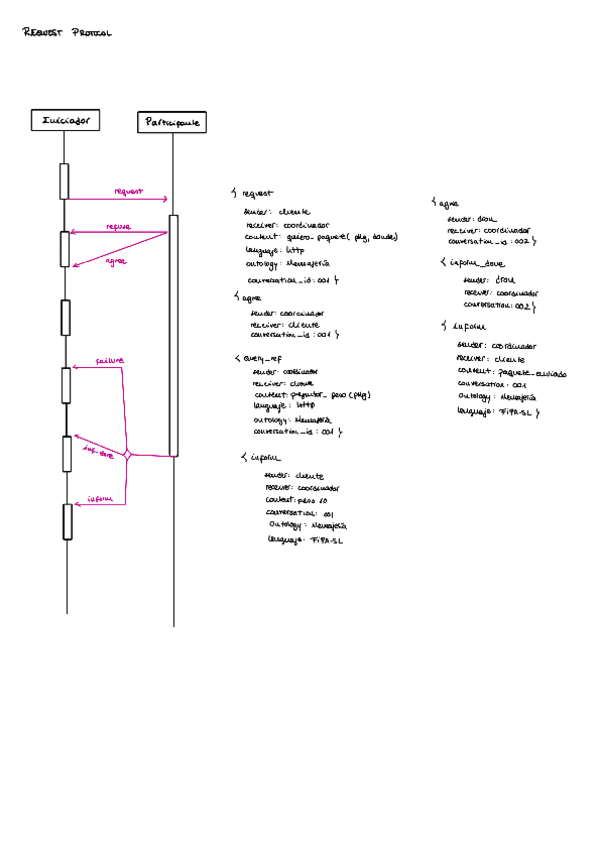 REQUEST PROTOCOL
Iniciador
Participante
request
refuse
agree
failure
inf_done
inform
{ request
sender: cliente
receiver: coordinador
content: quiero_paquete( pkg, donde)
lenguaje: http
ontology: Mensajería
conversation_id: 001 }
{ agree
sender: coordinador
receiver: cliente
conversation_id: 001 }
{ query_ref
sender: coordinador
receiver: cliente
content: preguntar_peso (pkg)
lenguaje: http
ontology: Mensajería
conversation_id: 001 }
{ inform
sender: cliente
receiver: coordinador
content: peso 10
conversation: 001
Ontology: Mensajería
lenguaje: FIPA-SL
{ agree
sender: dron
receiver: coordinador
conversation_id: 002 }
{ inform_done
sender: dron
receiver: coordinador
conversation: 002 }
{ inform
sender: coordinador
receiver: cliente
content: paquete_enviado
conversation: 001
Ontology: Mensajería
lenguaje: FIPA-SL }